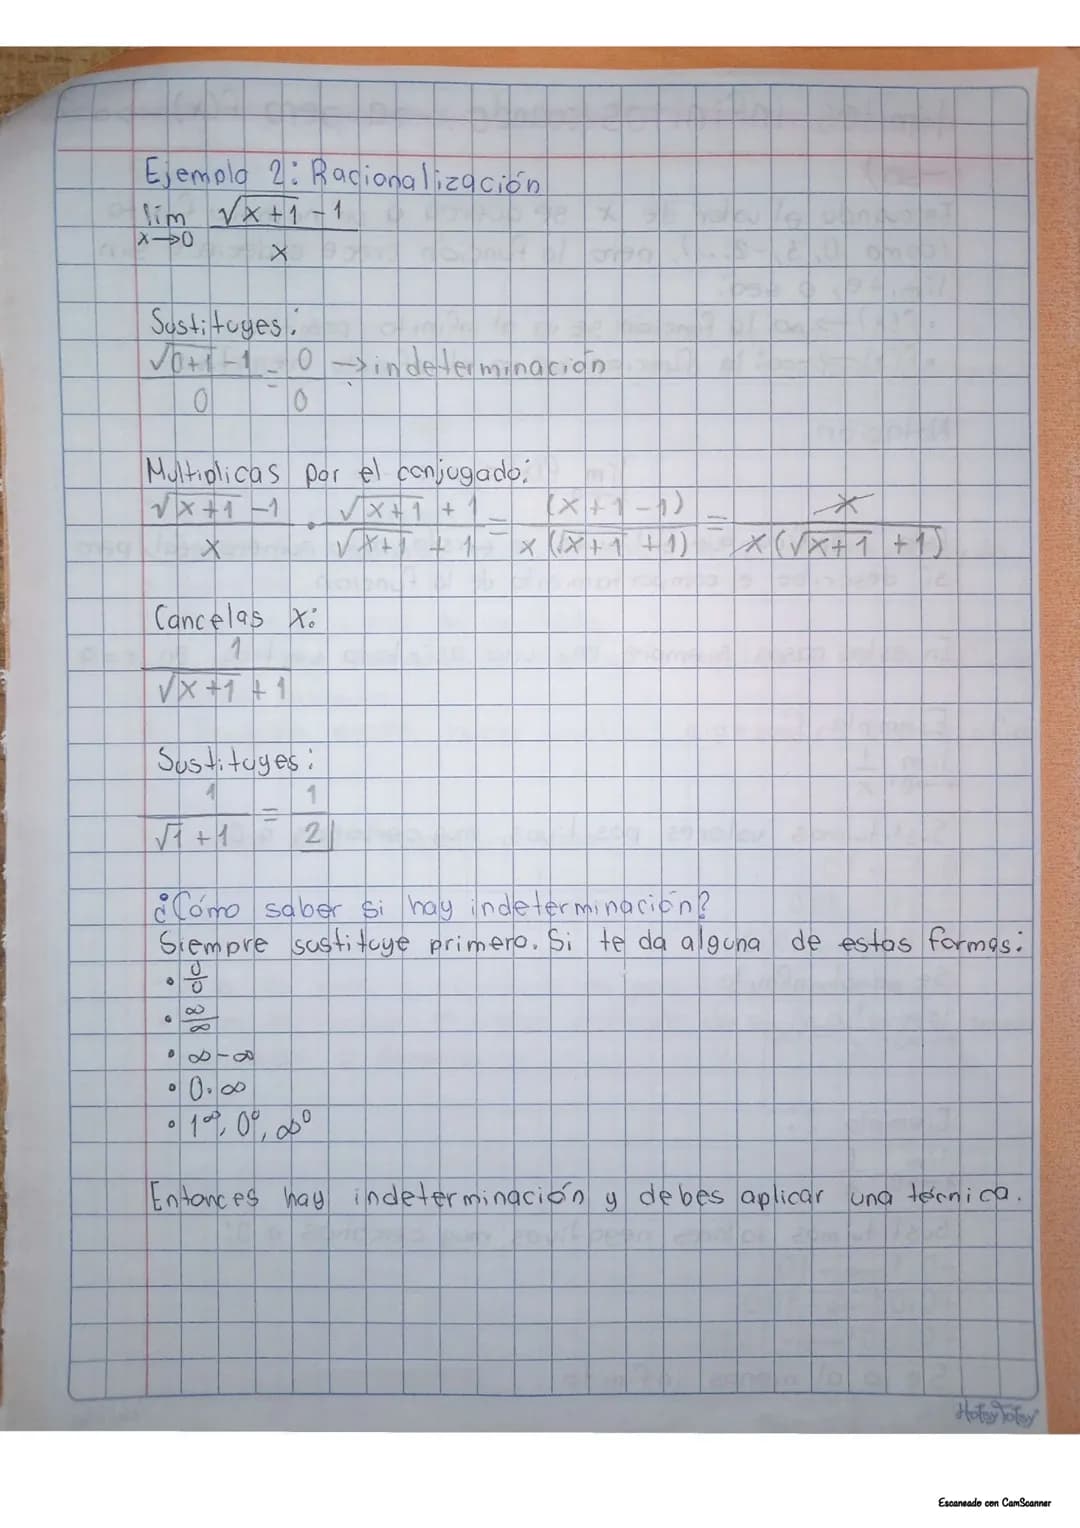 Ejemplo 2: Racionalización
lim √x+1 - 1
x→0 x
Sustituyes:
√0+1 - 1 = 0 → indeterminación
0 0
Multiplicas por el conjugado:
√x+1 - 1 · √x+1 + 1 = (x+1-1) = x
x √x+1 + 1 x(√x+1 + 1) x(√x+1 + 1)
Cancelas x:
1
√x+1 + 1
Sustituyes:
1 = 1
√1 + 1 2
¿Cómo saber si hay indeterminación?
Siempre sustituye primero. Si te da alguna de estas formas:
• 0/0
• ∞/∞
• ∞-∞
• 0·∞
• 1^∞, 0^0, ∞^0
Entonces hay indeterminación y debes aplicar una técnica.
HotsyTotsy
Escaneado con CamScanner